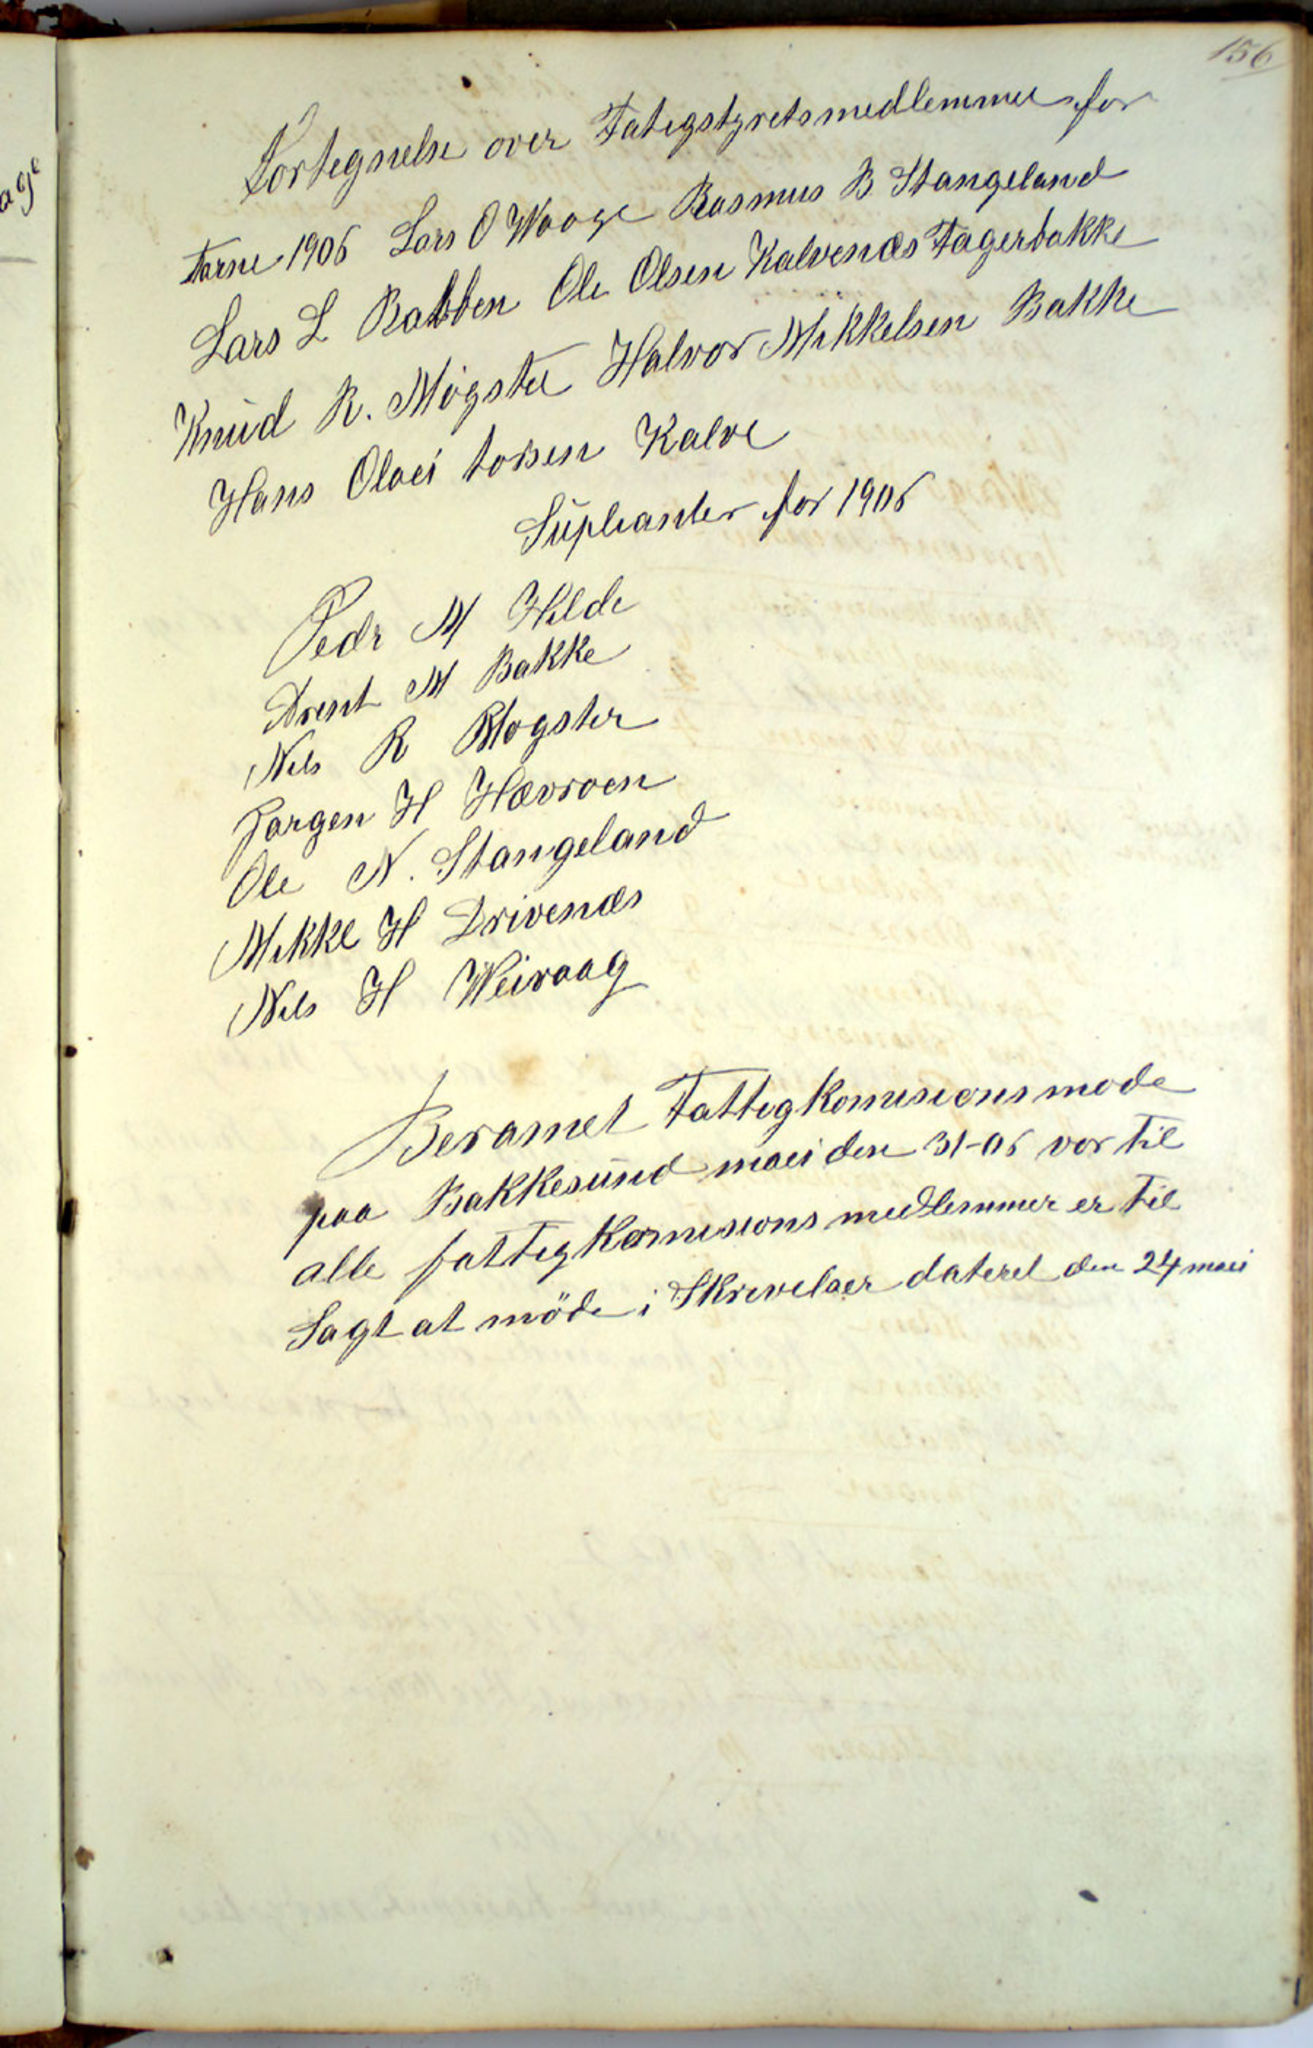 156
Fortegnelse over Fatigstyretsmedlemmer for
Tarne 1906 Lars O Waage Rasmus B. Stangeland
Lars L Rabben Ole Olsen Kalvenæs Fagerbakke
Knud R. Møgster Halvor Mikkelsen Bakke
Hans Olaei Kalve
Supleanter for 1906
Pedr M Hilde
Arent M Bakke
Nils R Møgster
Jørgen H Hævroen
Ole N. Stangeland
Mikkl H Drivenæs
Nils H Weivaag
Beramet Fattigkomisionsmøde
paa Bakkesund maei den 31-06 vor til
alle fattigkomisions medlemmer er til
Sagt at møde i Skrivelser daterel den 24 maei
age